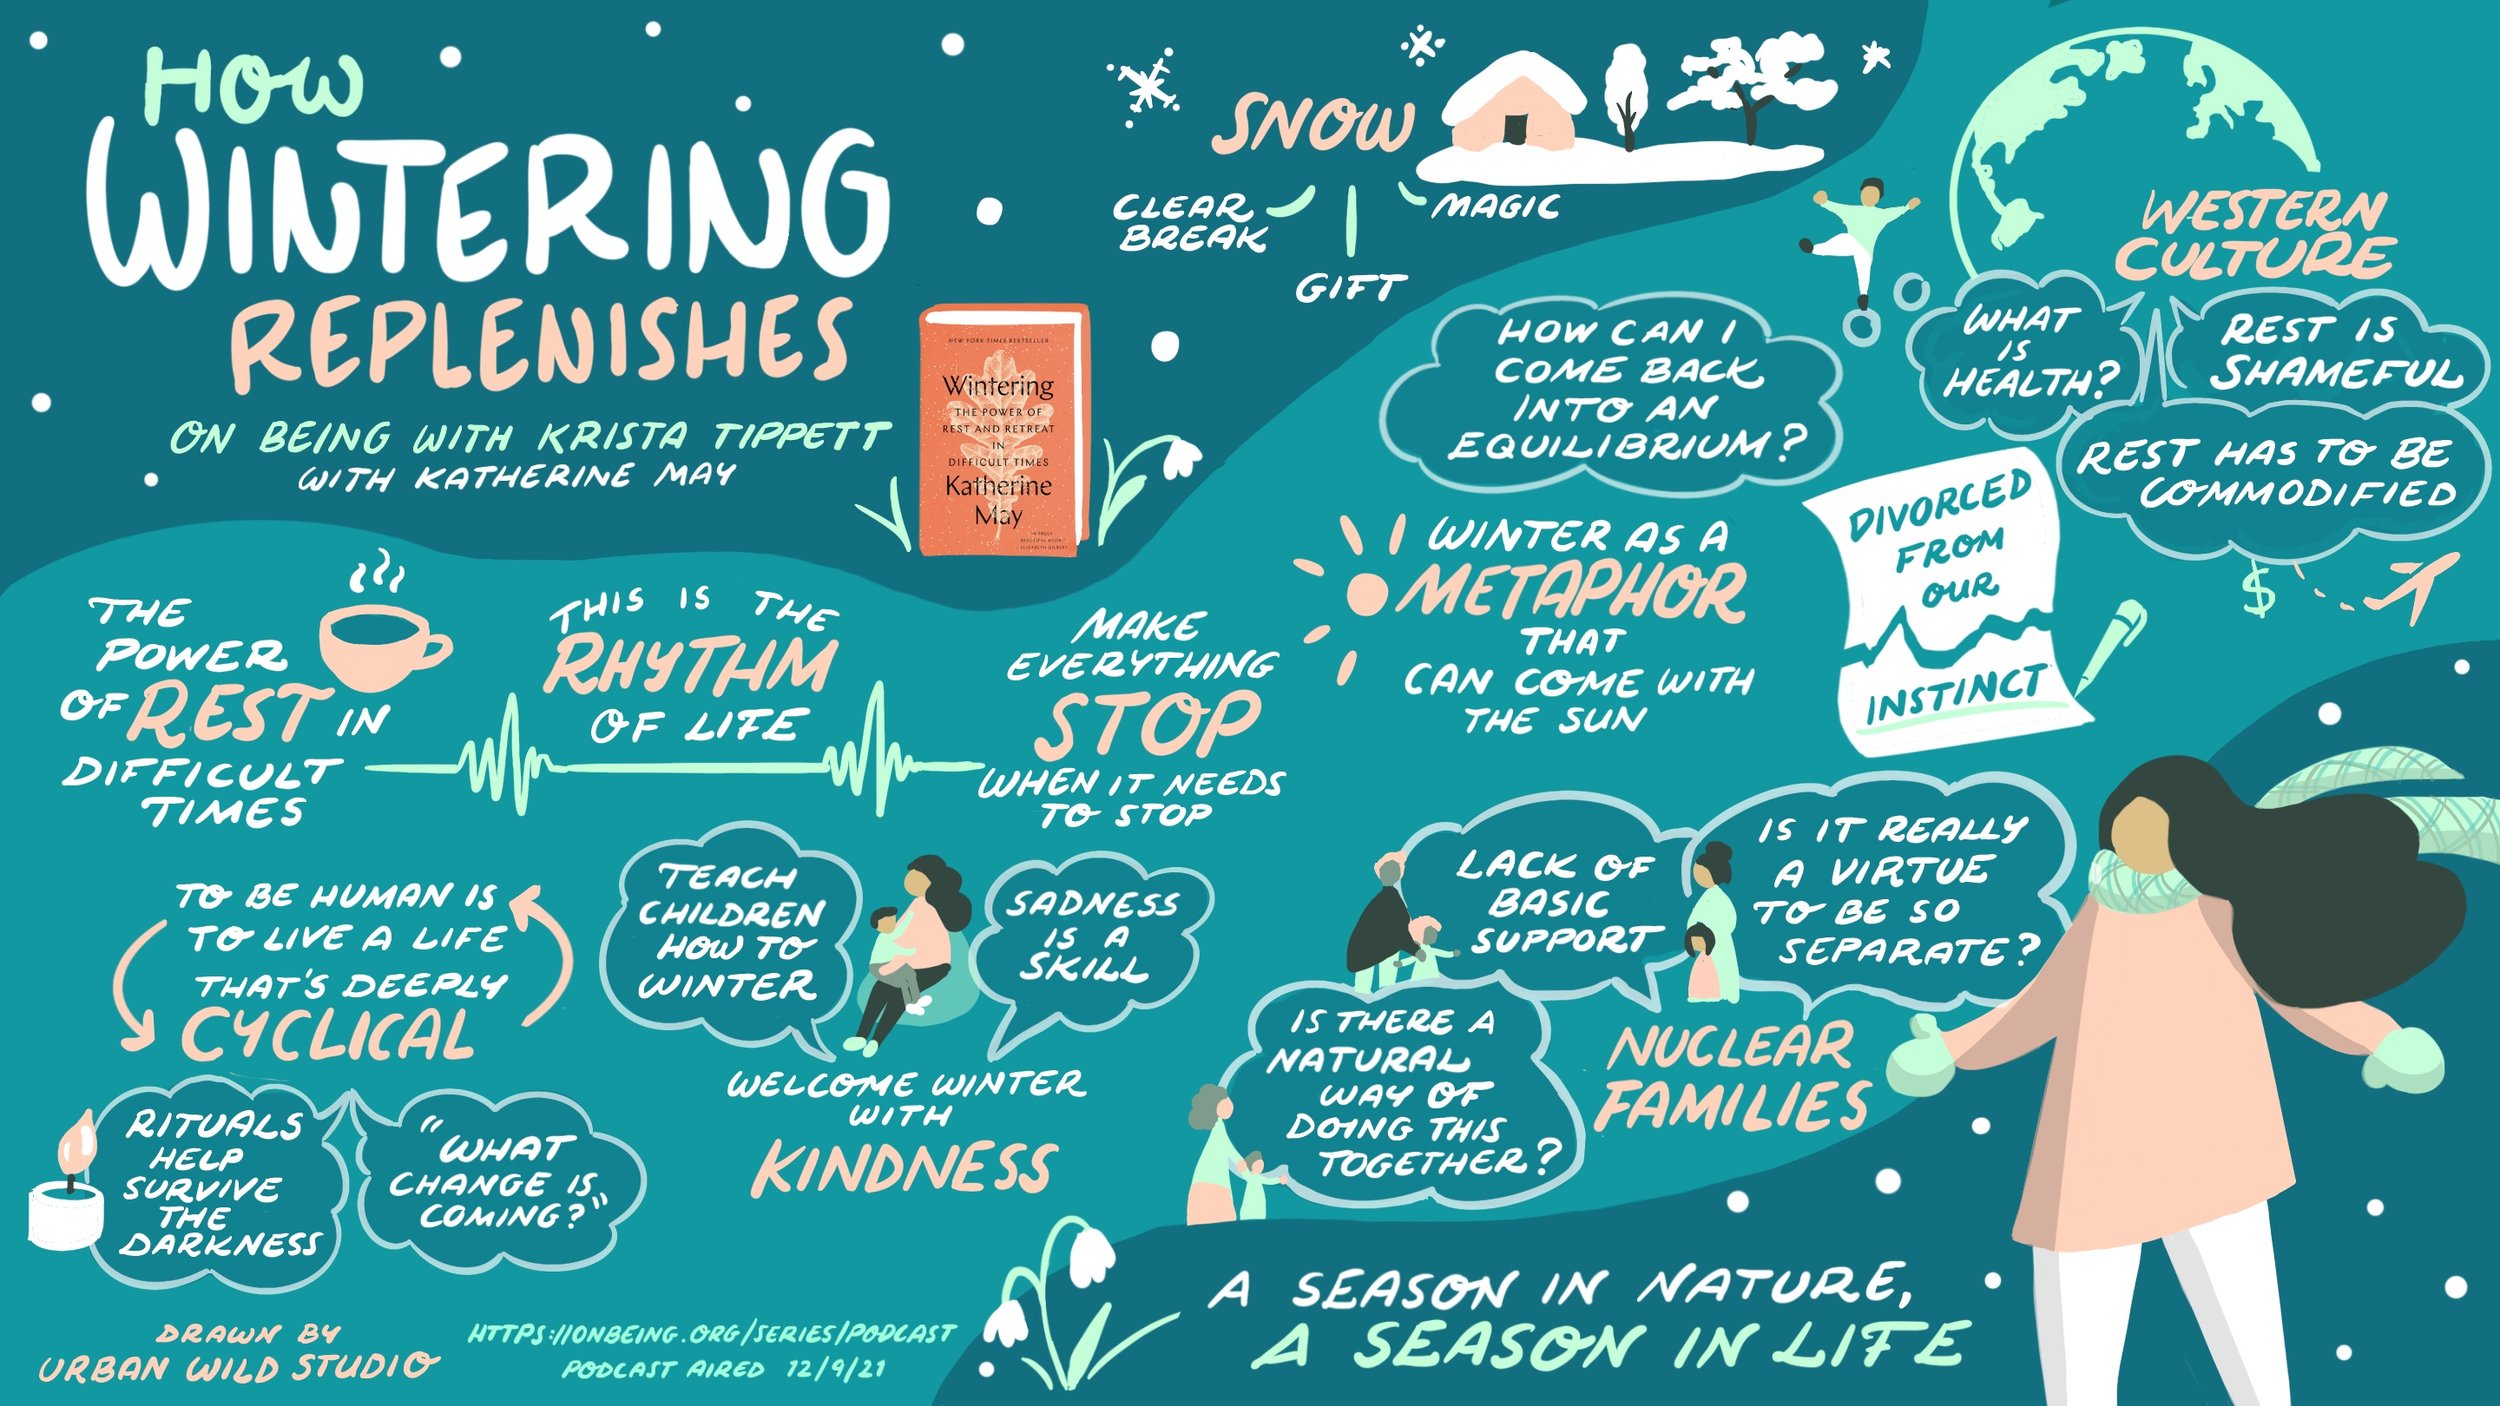 HOW
WINTERING
REPLENISHES
ON BEING WITH KRISTA TIPPETT
WITH KATHERINE MAY
NEW YORK TIMES BESTSELLER
Wintering
THE POWER OF
REST AND RETREAT
IN
DIFFICULT TIMES
Katherine
May
"A TRULY
BEAUTIFUL BOOK."
—ELIZABETH GILBERT
SNOW
CLEAR
BREAK
GIFT
MAGIC
WESTERN
CULTURE
WHAT
IS
HEALTH?
REST IS
SHAMEFUL
REST HAS TO BE
COMMODIFIED
$
HOW CAN I
COME BACK
INTO AN
EQUILIBRIUM?
DIVORCED
FROM
OUR
INSTINCT
WINTER AS A
METAPHOR
THAT
CAN COME WITH
THE SUN
THE
POWER
OF REST IN
DIFFICULT
TIMES
THIS IS THE
RHYTHM
OF LIFE
MAKE
EVERYTHING
STOP
WHEN IT NEEDS
TO STOP
TO BE HUMAN IS
TO LIVE A LIFE
THAT'S DEEPLY
CYCLICAL
TEACH
CHILDREN
HOW TO
WINTER
SADNESS
IS A
SKILL
WELCOME WINTER
WITH
KINDNESS
LACK OF
BASIC
SUPPORT
IS IT REALLY
A VIRTUE
TO BE SO
SEPARATE?
IS THERE A
NATURAL
WAY OF
DOING THIS
TOGETHER?
NUCLEAR
FAMILIES
RITUALS
HELP
SURVIVE
THE
DARKNESS
"WHAT
CHANGE IS
COMING?"
DRAWN BY
URBAN WILD STUDIO
HTTPS://ONBEING.ORG/SERIES/PODCAST
PODCAST AIRED 12/9/21
A SEASON IN NATURE,
A SEASON IN LIFE